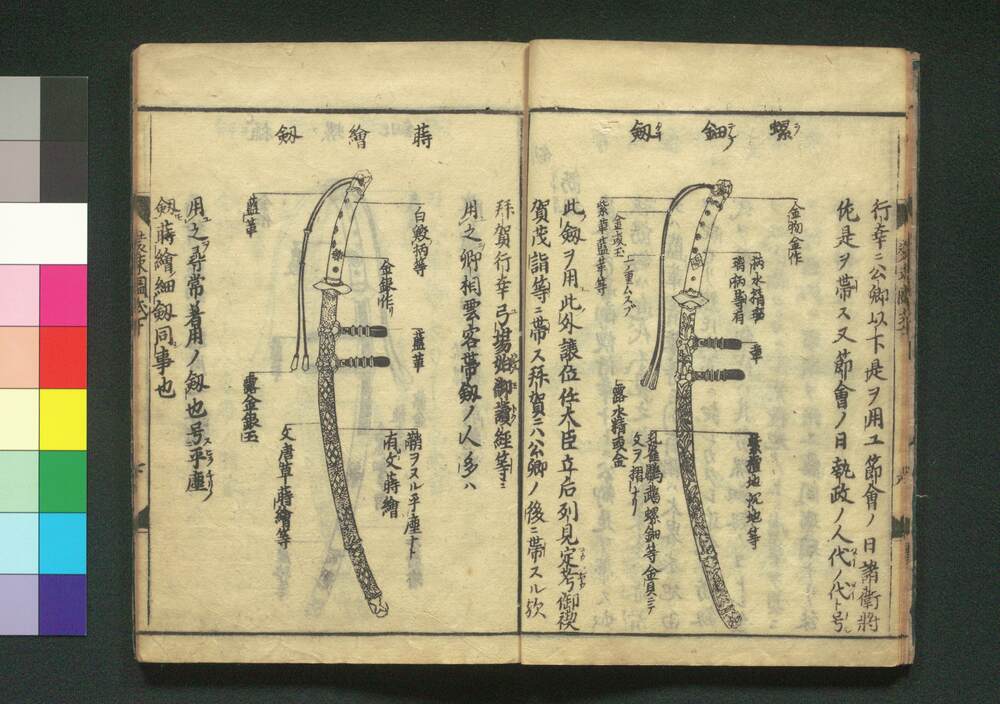 行幸ニ公卿以下是ヲ用エ節會ノ日諸衛將
佐是ヲ帶ス又節會ノ日執政ノ人代ノ代ト号
螺鈿劔
金物金作
瑪瑙水精
璃柄等有
革
紫檀地沉地等
金或玉
二重ムスブ
紫革藍革等
露水精或金
孔雀鸚鵡螺鈿等金貝ニテ
文ヲ摺ナリ
此劔ヲ用此外讓位任大臣立后列見定考御禊
賀茂詣等ニ帶ス拜賀ニハ公卿ノ後ニ帶スル欤
蒔繪劔
白鮫柄等
金銀作リ
藍革
鞘ヲスル平塵ナト
有文蒔繪
文唐草蒔繪等
藍革
露金銀玉
拜賀行幸弓場始御讀經等ニ
用之卿相雲客帶劔ノ人多ハ
用之尋常着用ノ劔也号平塵
劔蒔繪細劔同事也
裝束圖式下